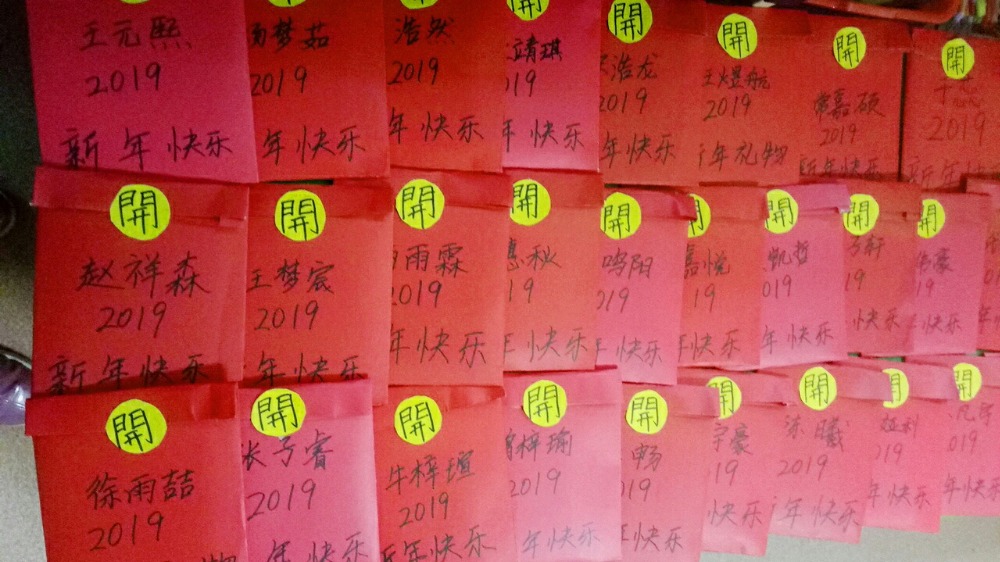 王元熙
2019
新年快乐
梦茹
2019
年快乐
浩然
2019
年快乐
靖琪
19
年快乐
開
浩龙
2019
年快乐
開
王煜航
2019
年礼物
開
常嘉硕
2019
新年快乐
開
2019
新年快
開
赵祥森
2019
新年快乐
開
王梦宸
2019
年快乐
開
雨霖
2019
年快乐
開
惠秋
19
年快乐
開
鸣阳
019
年快乐
開
嘉悦
19
年快乐
開
凯哲
019
年快乐
開
轩
19
快乐
開
豪
19
快乐
開
徐雨喆
2019
開
张子睿
2019
年快乐
開
牛梓瑄
2019
新年快乐
開
梓瑜
2019
年快乐
開
畅
019
年快乐
開
宇豪
19
快乐
開
曦
2019
年快乐
開
019
年快乐
開
凡宇
019
年快乐